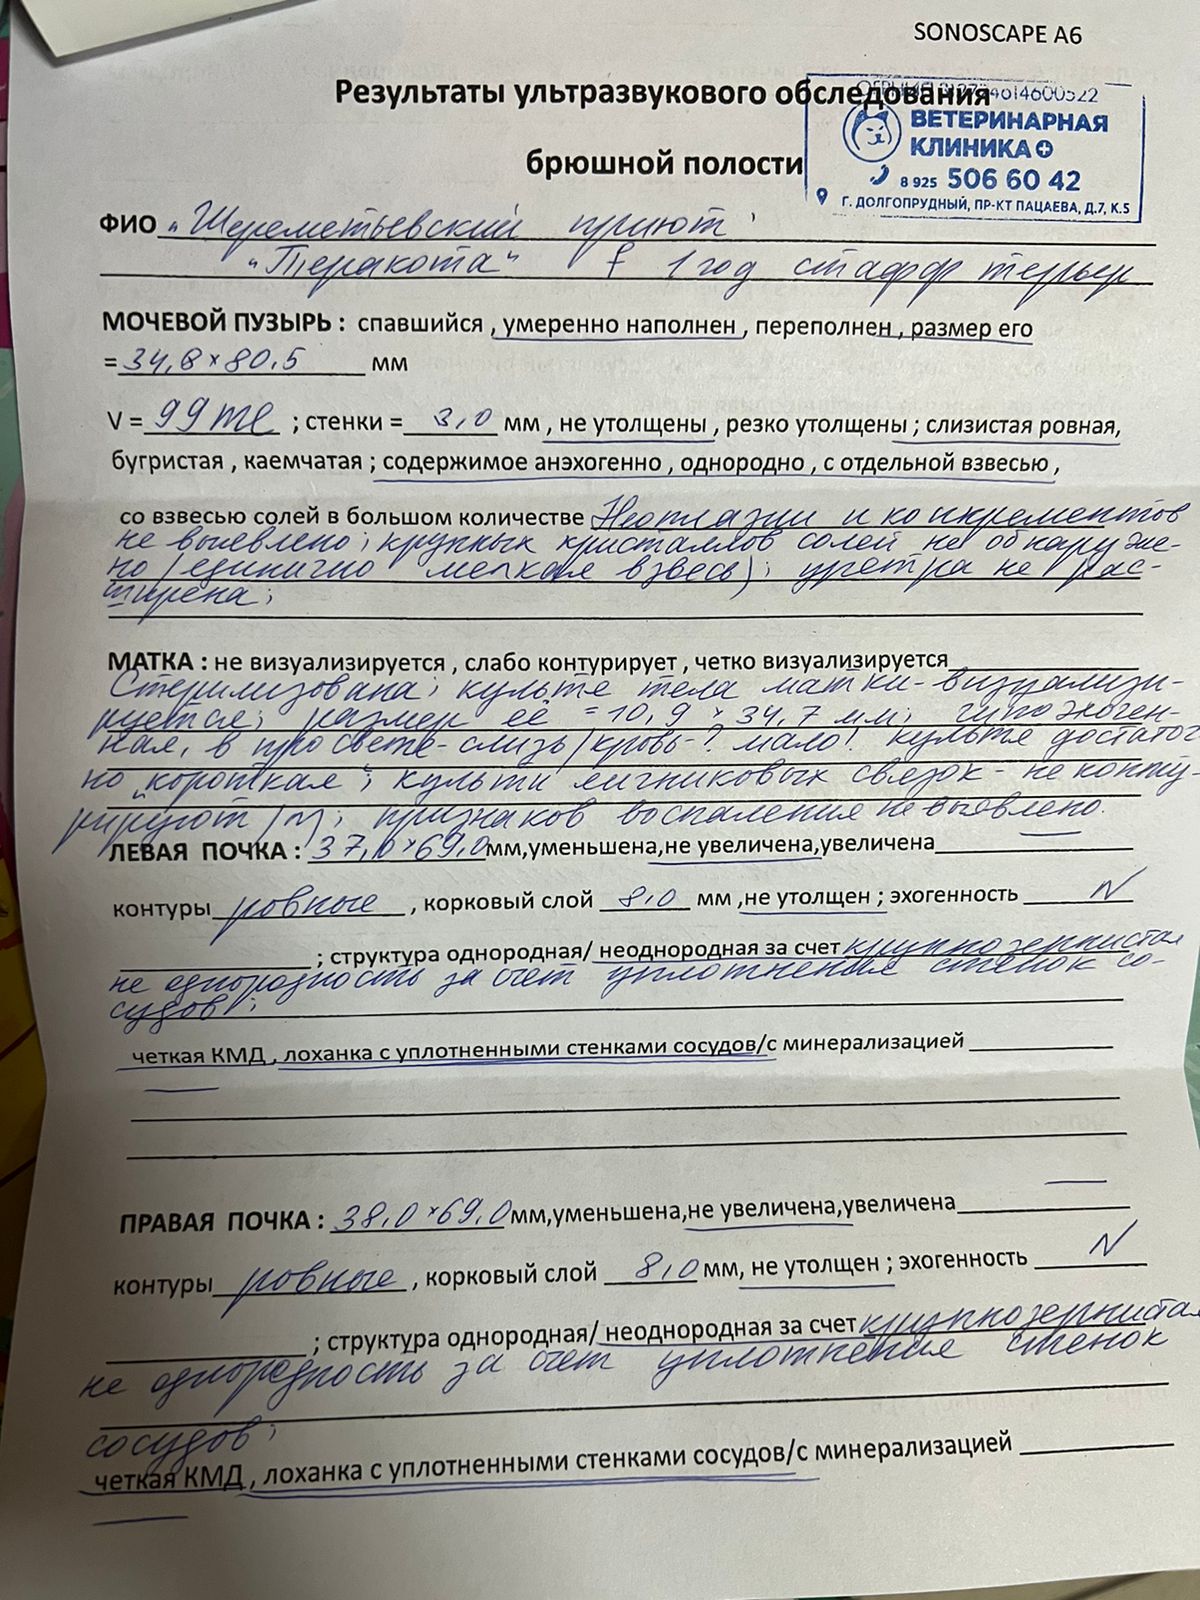 SONOSCAPE A6
Результаты ультразвукового обследования
брюшной полости
ВЕТЕРИНАРНАЯ
КЛИНИКА
8 925 506 60 42
Г. ДОЛГОПРУДНЫЙ, ПР-КТ ПАЦАЕВА, Д.7, К.5
ФИО "Шереметьевский приют"
"Теракота" f 1 год стафф терьер
МОЧЕВОЙ ПУЗЫРЬ : спавшийся , умеренно наполнен , переполнен , размер его
= 34,8 × 80,5 мм
V = 99 ml ; стенки = 3,0 мм , не утолщены , резко утолщены ; слизистая ровная,
бугристая , каемчатая ; содержимое анэхогенно , однородно , с отдельной взвесью ,
со взвесью солей в большом количестве Неоплазии и конкрементов
не выявлено; крупных кристаллов солей не обнаруже-
но (единично мелкая взвесь); уретра не рас-
ширена;
МАТКА : не визуализируется , слабо контурирует , четко визуализируется
Стерилизована; культе тела матки - визуализи-
руется; размер её = 10,9 × 34,7 мм; гипоэхоген-
ная, в просвете - слизь/кровь-? мало! культе достаточ
но "короткая"; культи яичниковых связок - не конту-
рируют (N); признаков воспаления не выявлено.
ЛЕВАЯ ПОЧКА : 37,0 × 69,0 мм,уменьшена,не увеличена,увеличена
контуры ровные , корковый слой 8,0 мм ,не утолщен ; эхогенность N
; структура однородная/ неоднородная за счет крупнозернистая
не однородность за счет уплотнения стенок со-
судов;
четкая КМД , лоханка с уплотненными стенками сосудов/с минерализацией
ПРАВАЯ ПОЧКА : 38,0 × 69,0 мм,уменьшена,не увеличена,увеличена
контуры ровные , корковый слой 8,0 мм, не утолщен ; эхогенность N
; структура однородная/ неоднородная за счет крупнозернистая
не однородность за счет уплотнения стенок
сосудов;
четкая КМД , лоханка с уплотненными стенками сосудов/с минерализацией